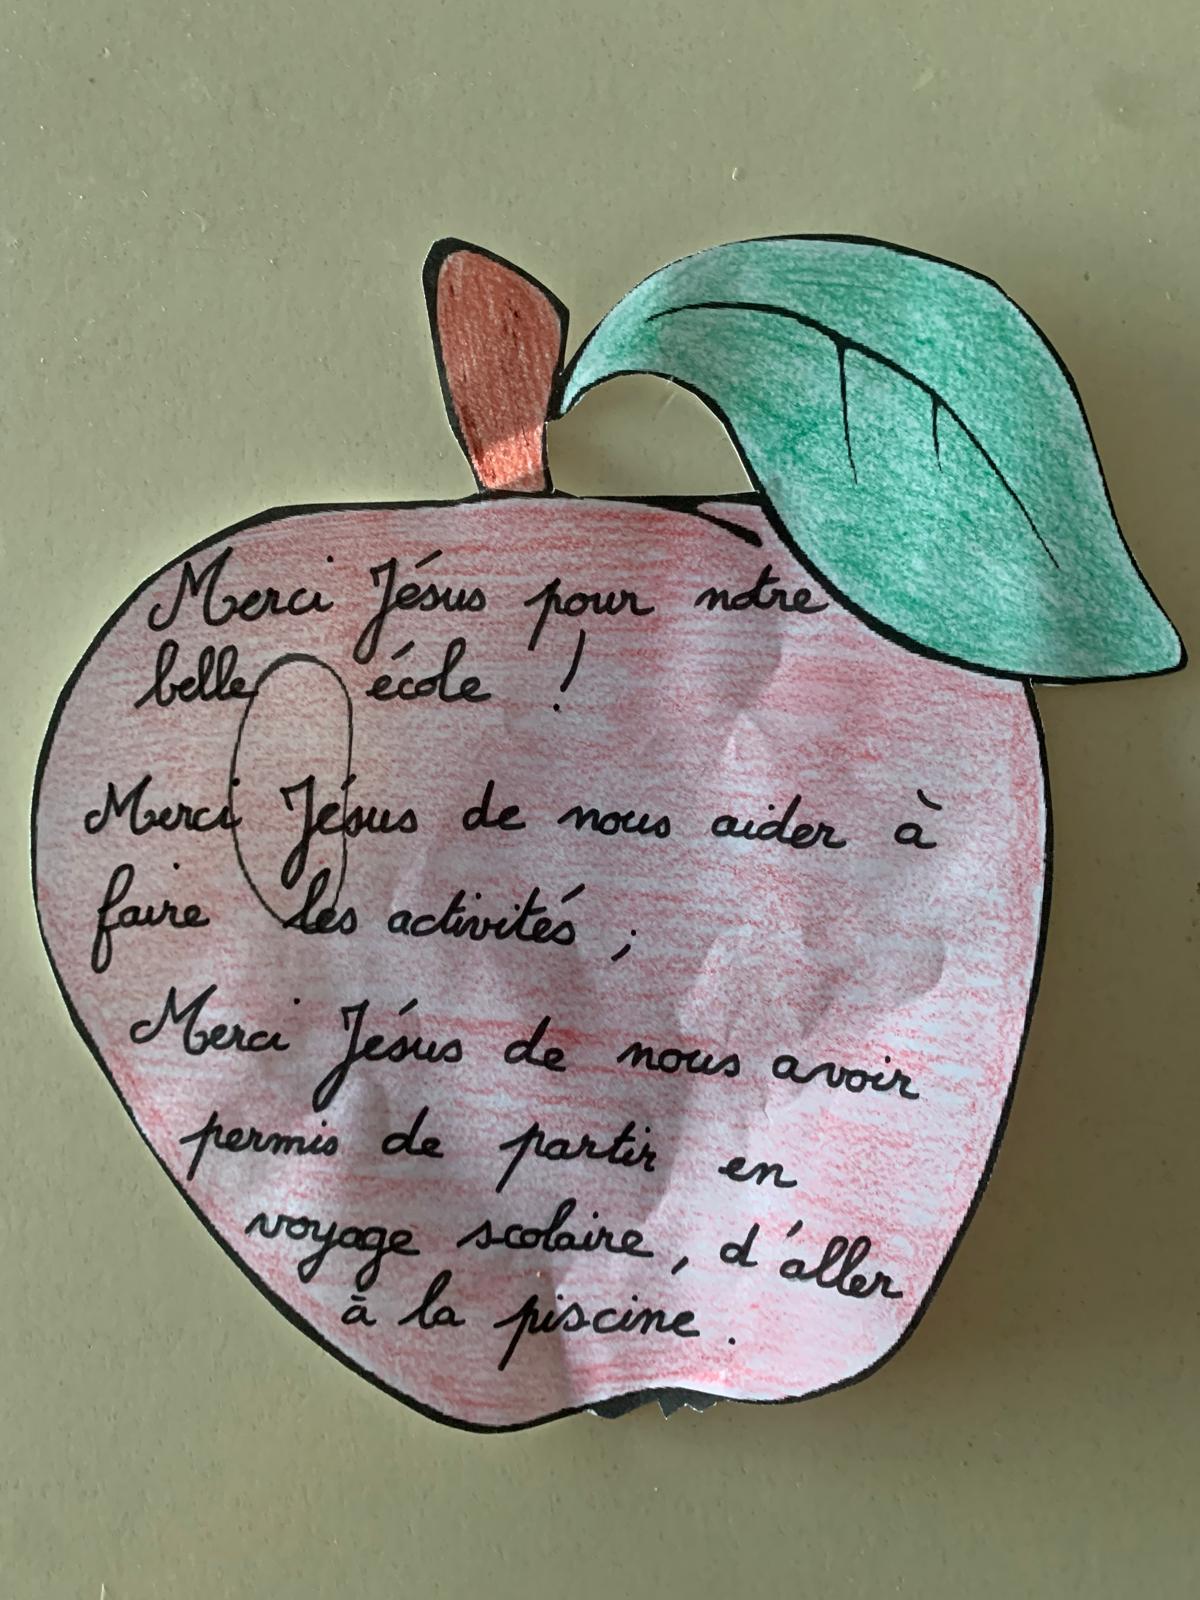 Merci Jésus pour notre
belle école !
Merci Jésus de nous aider à
faire les activités ;
Merci Jésus de nous avoir
permis de partir en
voyage scolaire, d'aller
à la piscine.